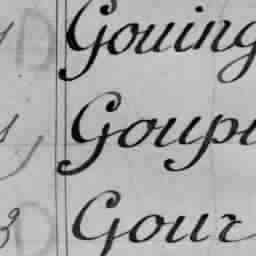 Gouing
Goupi
Gour